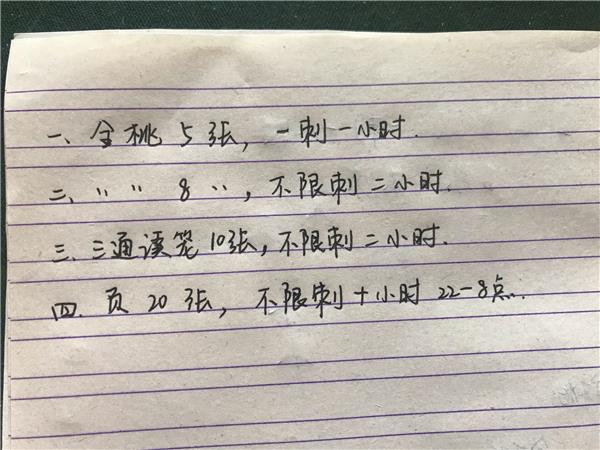 一、全桃 5 张, 一刺一小时.
二、〃 〃 8 〃, 不限刺二小时.
三.三通谟笼10张,不限刺二小时.
四.页 20 张, 不限刺十小时 22-8点.